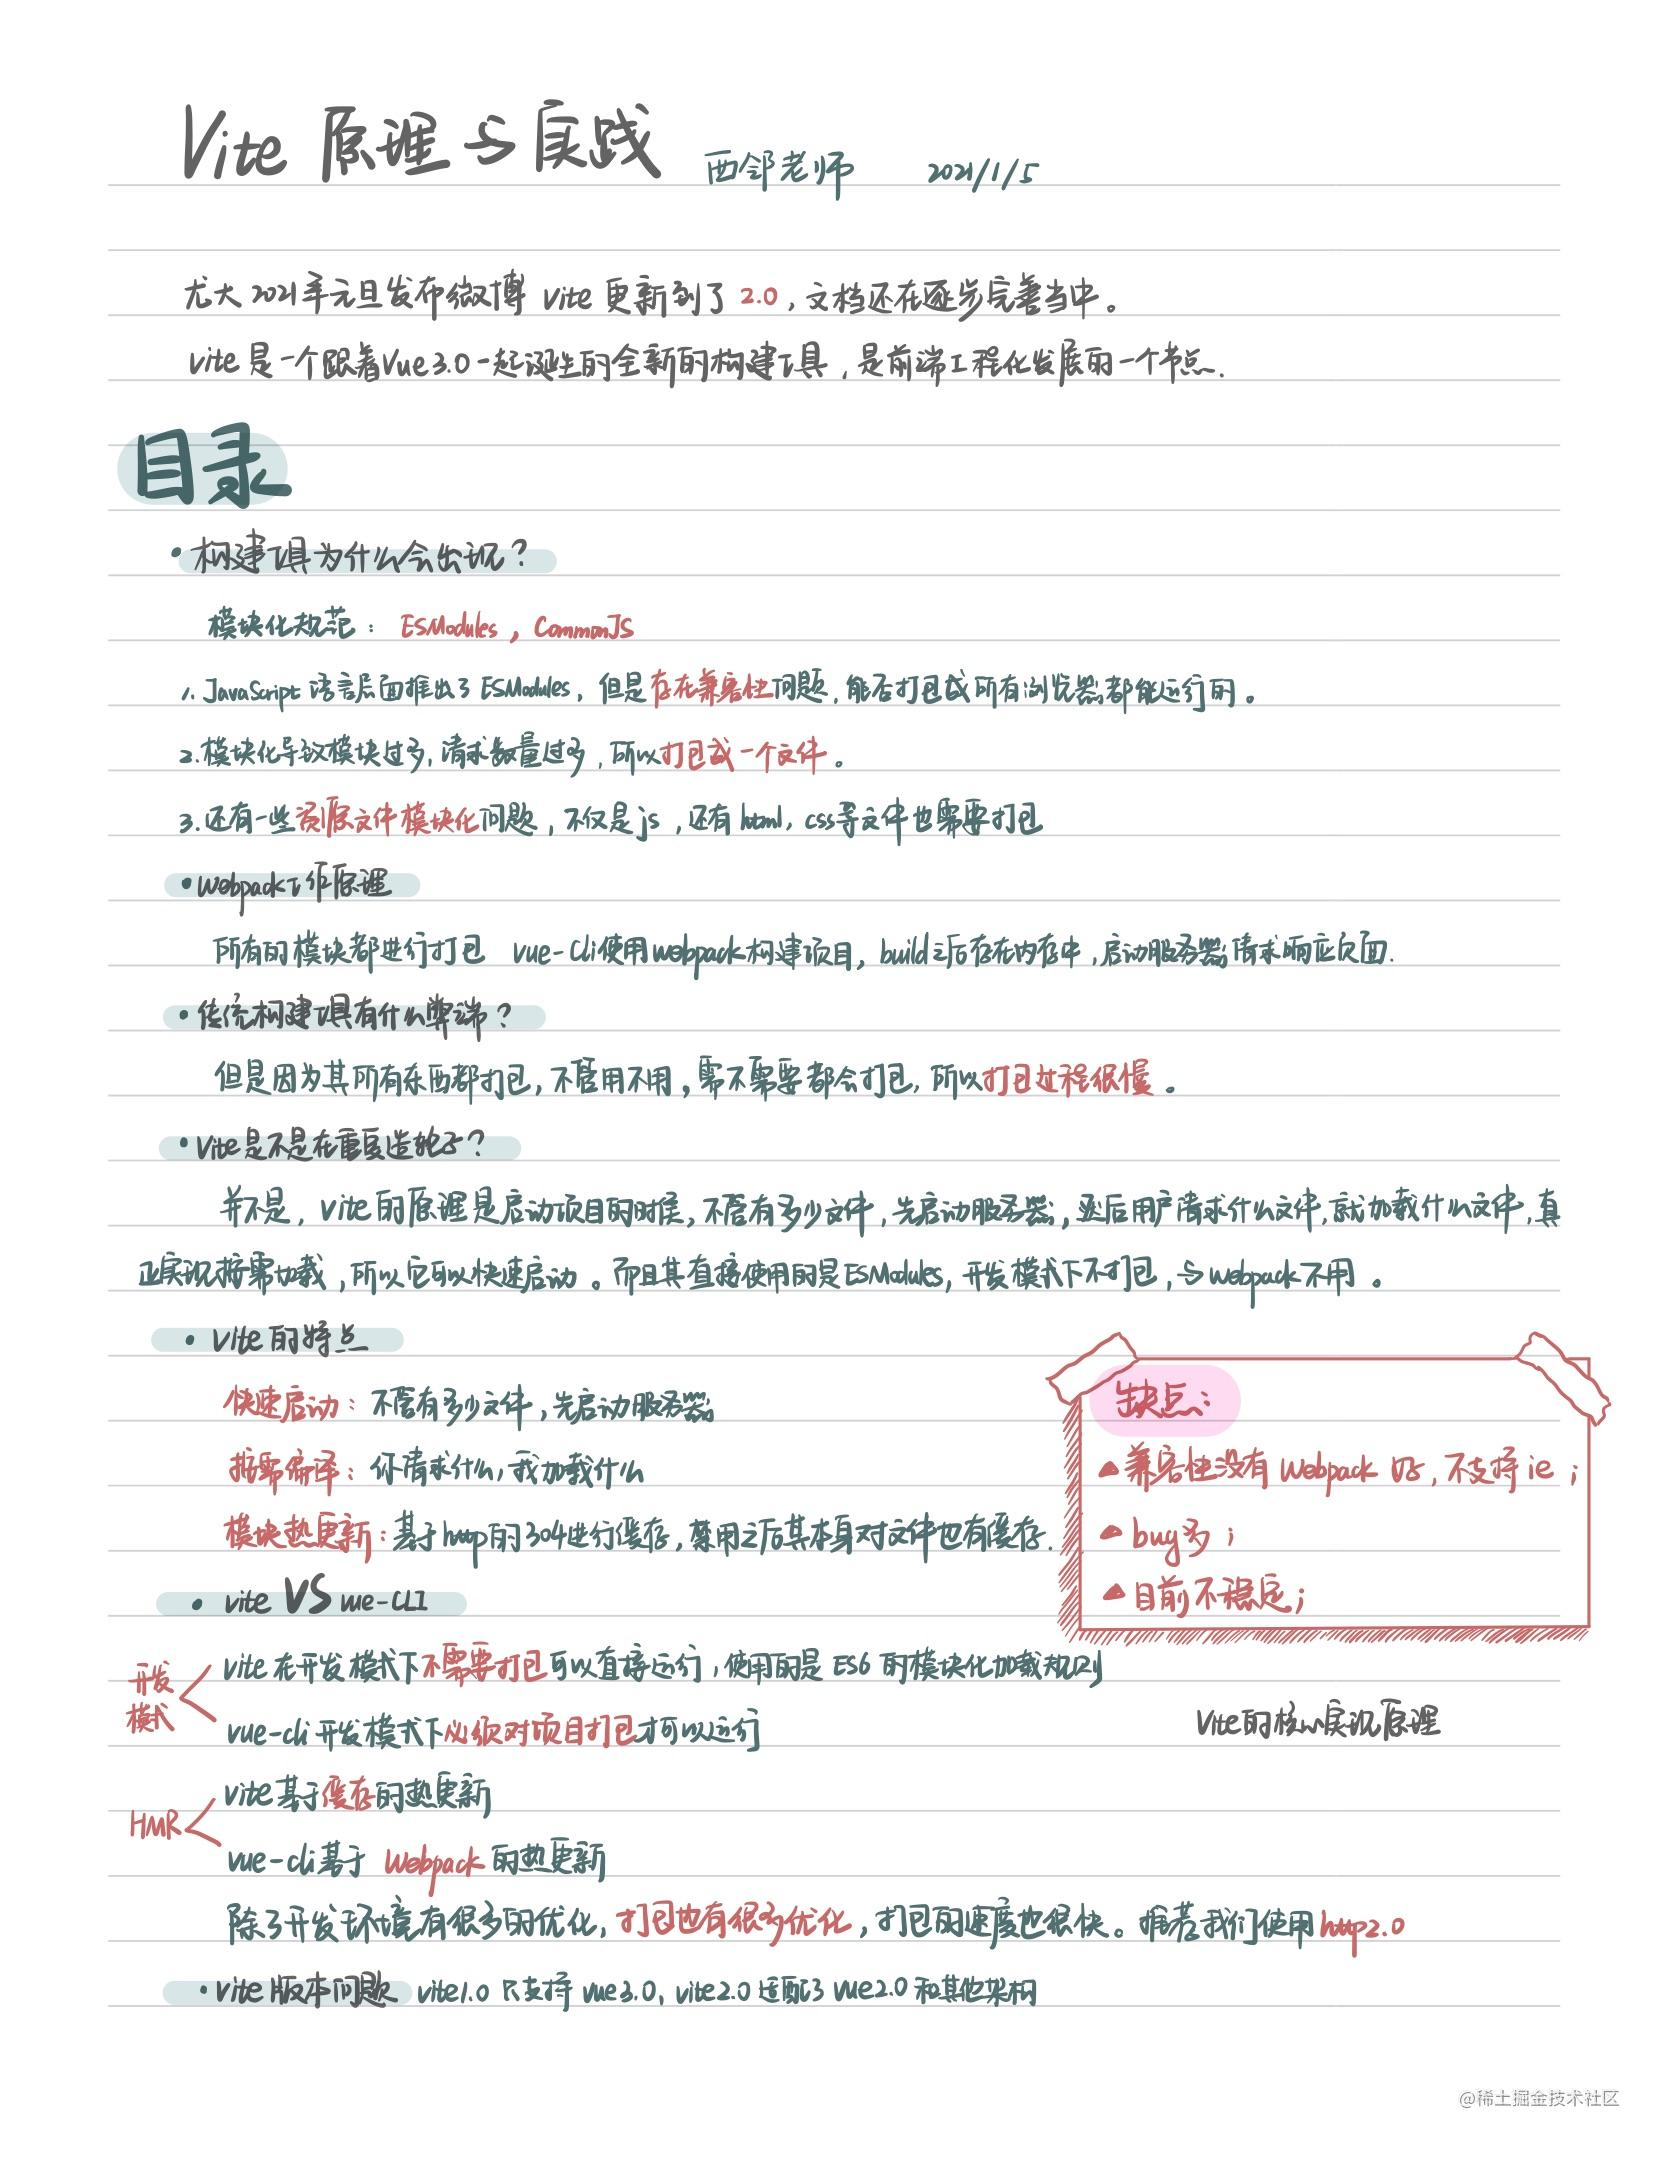 Vite 原理与实践 西邻老师 2021/1/5
尤大 2021年元旦发布微博 vite 更新到了 2.0，文档还在逐步完善当中。
vite 是一个跟着Vue3.0一起诞生的全新的构建工具，是前端工程化发展的一个节点.
目录
• 构建工具为什么会出现？
模块化规范： ESModules，CommonJS
1. JavaScript 语言层面推出了 ESModules，但是存在兼容性问题，能否打包成所有浏览器都能运行的。
2.模块化导致模块过多，请求数量过多，所以打包成一个文件。
3.还有一些资源文件模块化问题，不仅是js，还有html，css等文件也需要打包
• Webpack工作原理
所有的模块都进行打包 vue-cli使用webpack构建项目，build之后存在内存中，启动服务器请求响应页面.
• 传统构建工具有什么弊端？
但是因为其所有东西都打包，不管用不用，需不需要都会打包，所以打包过程很慢。
• Vite是不是在重复造轮子？
并不是，vite的原理是启动项目的时候，不管有多少文件，先启动服务器，然后用户请求什么文件，就加载什么文件，真
正实现按需加载，所以它可以快速启动。而且其直接使用的是ESModules，开发模式下不打包，与webpack不用。
• vite的特点
快速启动：不管有多少文件，先启动服务器
按需编译：你请求什么，我加载什么
模块热更新：基于http的304进行缓存，禁用之后其本身对文件也有缓存.
缺点：
▲兼容性没有 Webpack 好，不支持 ie；
▲bug多；
▲目前不稳定；
• vite VS vue-CLI
开发模式
vite 在开发模式下不需要打包可以直接运行，使用的是 ES6 的模块化加载规则
vue-cli 开发模式下必须对项目打包才可以运行
Vite的核心实现原理
HMR
vite基于缓存的热更新
vue-cli基于 Webpack 的热更新
除了开发环境有很多的优化，打包也有很多优化，打包的速度也很快。推荐我们使用http2.0
• vite版本问题 vite1.0 只支持 vue3.0，vite2.0 适配了 vue2.0 和其他架构
@稀土掘金技术社区